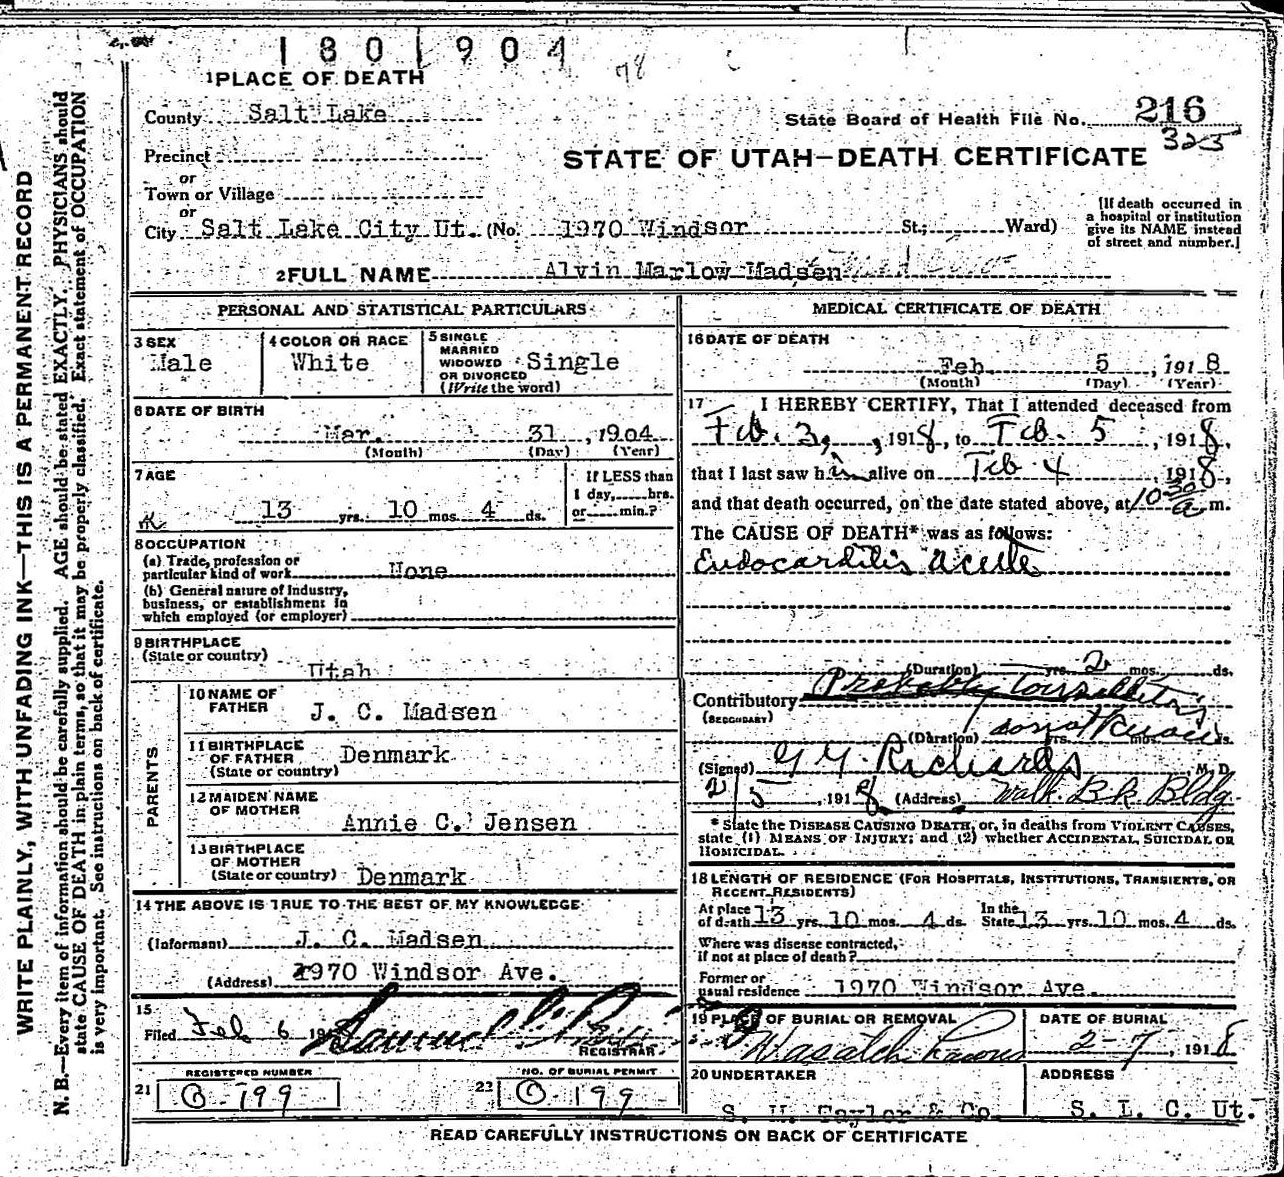 1801904
78
1 PLACE OF DEATH
County Salt Lake
State Board of Health File No. 216
325
Precinct
or
Town or Village
or
STATE OF UTAH—DEATH CERTIFICATE
City Salt Lake City Ut. (No. 1970 Windsor St.; Ward)
[If death occurred in
a hospital or institution
give its NAME instead
of street and number.]
2 FULL NAME Alvin Marlow Madsen
PERSONAL AND STATISTICAL PARTICULARS
3 SEX
Male
4 COLOR OR RACE
White
5 SINGLE
MARRIED
WIDOWED
OR DIVORCED
(Write the word)
Single
6 DATE OF BIRTH
Mar. 31, 1904
(Month) (Day) (Year)
7 AGE
13 yrs. 10 mos. 4 ds.
If LESS than
1 day, hrs.
or min.?
8 OCCUPATION
(a) Trade, profession or
particular kind of work None
(b) General nature of Industry,
business, or establishment in
which employed (or employer)
9 BIRTHPLACE
(State or country)
Utah
PARENTS
10 NAME OF
FATHER J. C. Madsen
11 BIRTHPLACE
OF FATHER
(State or country) Denmark
12 MAIDEN NAME
OF MOTHER
Annie C. Jensen
13 BIRTHPLACE
OF MOTHER
(State or country) Denmark
14 THE ABOVE IS TRUE TO THE BEST OF MY KNOWLEDGE
(Informant) J. C. Madsen
(Address) 1970 Windsor Ave.
15
Filed Feb 6 19 Samuel G.
REGISTRAR
REGISTERED NUMBER
21 O-199
NO. OF BURIAL PERMIT
22 O-199
MEDICAL CERTIFICATE OF DEATH
16 DATE OF DEATH
Feb 5, 1918
(Month) (Day) (Year)
17 I HEREBY CERTIFY, That I attended deceased from
Feb. 3, , 1918, to Feb. 5 , 1918,
that I last saw him alive on Feb 4 1918,
and that death occurred, on the date stated above, at 10 30 a m.
The CAUSE OF DEATH* was as follows:
Endocarditis acute
(Duration) yrs. 2 mos. ds.
Contributory Probably Tonsillitis
(SECONDARY)
(Duration) do not know yrs. mos. ds.
(Signed) G G Richards M. D.
2/5, 1918 (Address) Walk. Bk Bldg.
* State the DISEASE CAUSING DEATH, or, in deaths from VIOLENT CAUSES,
state (1) MEANS OF INJURY; and (2) whether ACCIDENTAL, SUICIDAL OR
HOMICIDAL.
18 LENGTH OF RESIDENCE (FOR HOSPITALS, INSTITUTIONS, TRANSIENTS, OR
RECENT RESIDENTS)
At place
of death 13 yrs. 10 mos. 4 ds. In the
State 13 yrs. 10 mos. 4 ds.
Where was disease contracted,
if not at place of death?
Former or
usual residence 1970 Windsor Ave.
19 PLACE OF BURIAL OR REMOVAL
Wasatch Lawn
DATE OF BURIAL
2-7, 1918
20 UNDERTAKER
S. M. Taylor & Co.
ADDRESS
S. L. C. Ut.
READ CAREFULLY INSTRUCTIONS ON BACK OF CERTIFICATE
WRITE PLAINLY, WITH UNFADING INK—THIS IS A PERMANENT RECORD
N. B.—Every item of information should be carefully supplied. AGE should be stated EXACTLY. PHYSICIANS should
state CAUSE OF DEATH in plain terms, so that it may be properly classified. Exact statement of OCCUPATION
is very important. See instructions on back of certificate.